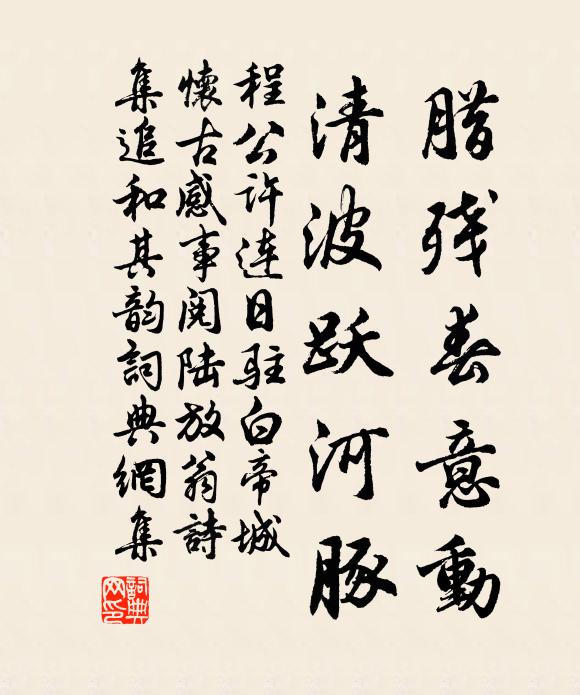 腊残春意動
清波跃河豚
程公许连日驻白帝城
懷古感事阅陆放翁詩
集追和其韵詞典網集
詞典网印